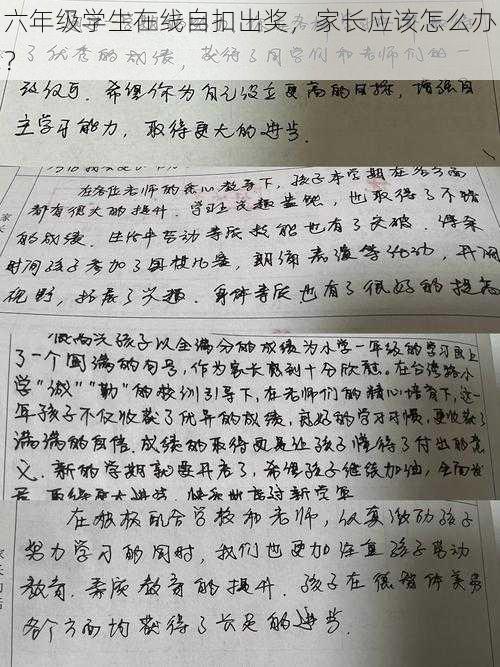 六年级学生在线自扣出奖，家长应该怎么办
?
了优秀的成绩，获得了同学们和老师们的一
致认可．希望你为自己设立更高的目标，增强自
主学习能力，取得更大的进步．
在各位老师的悉心教导下，孩子本学期在各方面
都有很大的提升．学习上兴趣盎然，也取得了不错
的成绩．生活中劳动等质技能也有了突破．课余
时间孩子参加了围棋比赛，朗诵表演等活动，开阔
视野，拓展了兴趣．身体素质也有了很好的提高
很高兴孩子以全满分的成绩为小学一年级的学习画上
了一个圆满的句号，作为家长感到十分欣慰．在台德路小
学"诚""勤"的校训引导下，在老师们的精心培育下，这一
年孩子不仅收获了优异的成绩，良好的学习习惯，更收获了
满满的自信．成绩的取得更是让孩子懂得了付出的意
义．新的学期就要开启了，希望孩子继续加油，全面发
展
在积极配合学校和老师，认真激励孩子
努力学习的同时，我们也更加注重孩子劳动
教育．素质教育的提升．孩子在德智体美劳
各个方面均获得了长足的进步．